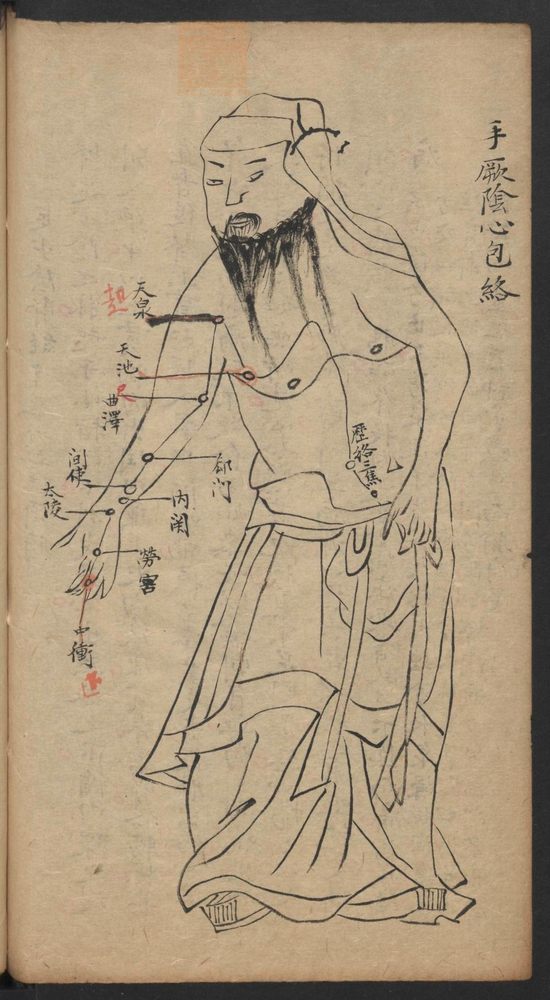 手厥陰心包絡
天泉
天池
曲澤
尺
郄门
间使
内関
太陵
劳宫
中衝
歷絡三焦